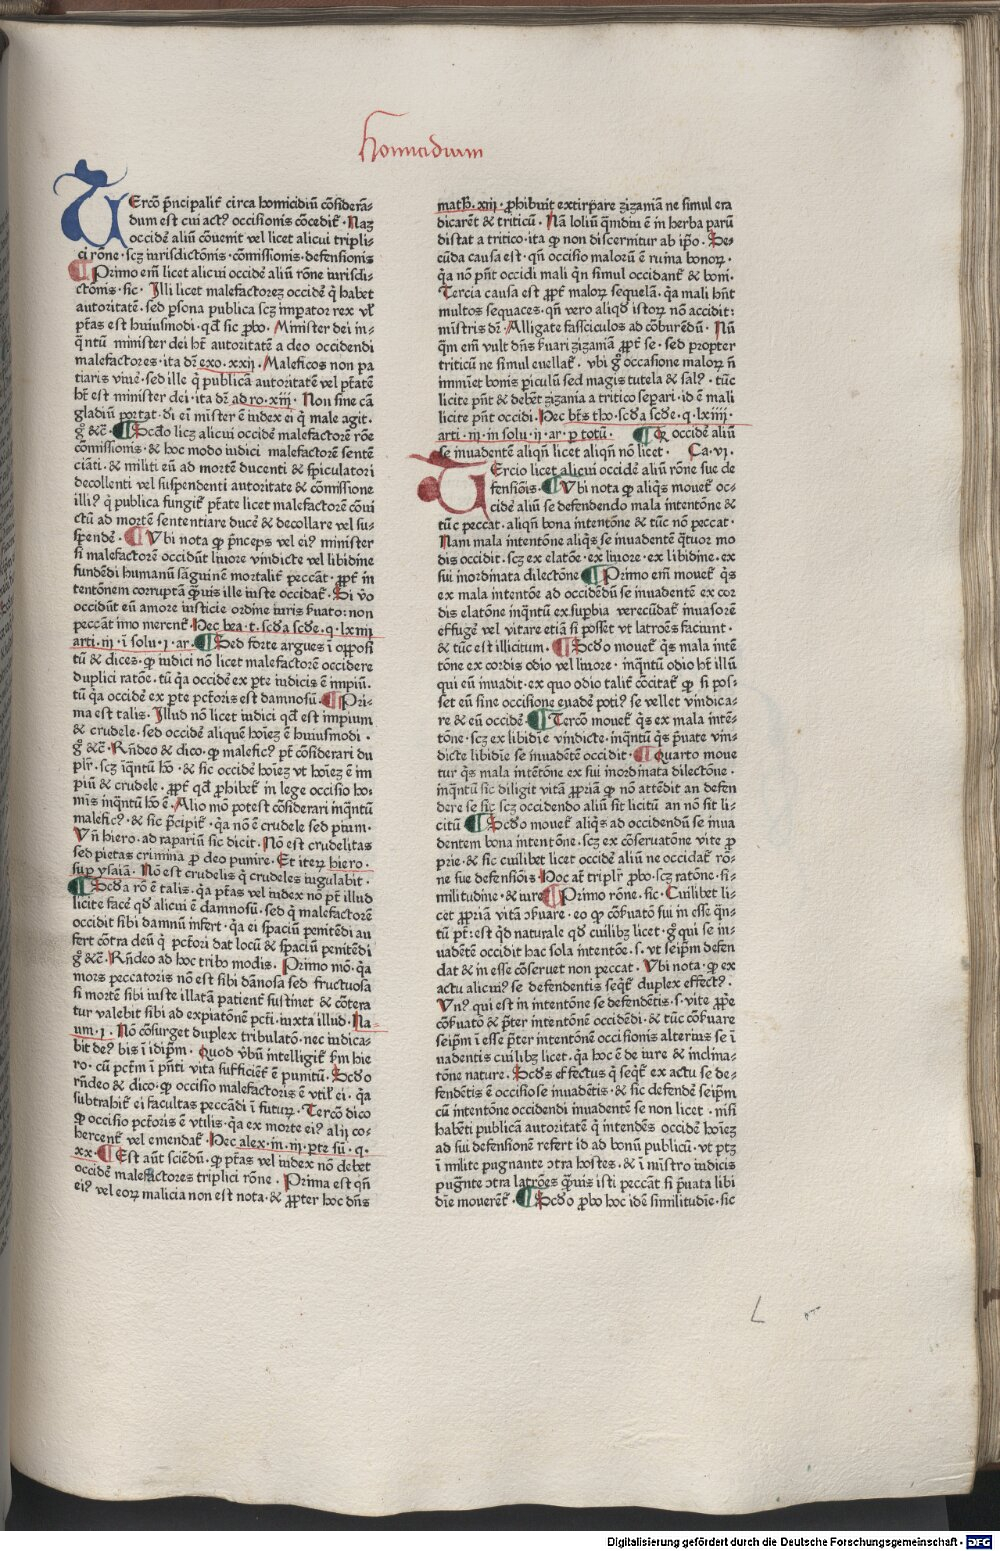 Homicidium
TErcõ p̃ncipalit̃ circa homicidiũ cõſiderã-
dum eſt cui actꝰ occiſionis cõcedit̃ · Naꝫ
occidẽ aliũ cõuenit vel licet alicui tripli-
ci rõne · ſcꝫ iurisdictõnis · cõmiſſionis · defenſionis
¶ Primo em̃ licet alicui occidẽ aliũ rõne iurisdi-
ctõnis · ſic · Illi licet malefactoreꝫ occidẽ q̃ habet
autoritatẽ · ſed ꝑſona publica ſcꝫ imꝑator rex vl̃
ptãs eſt huiusmodi · qđ ſic ꝓbo · Miniſter dei in-
q̃ntũ miniſter dei hꝫ autoritatẽ a deo occidendi
malefactores · ita dr̃ exo · xxij · Maleficos non pa
tiaris viuẽ · ſed ille q̃ publicã autoritatẽ vel ptãtẽ
hꝫ eſt miniſter dei · ita dr̃ ad ro · xiij · Non ſine cã
gladiũ portat · di ei miſter ẽ iudex ei q̃ male agit ·
g̊ &c̃ · ¶ Scđo licꝫ alicui occidẽ malefactorẽ rõe
cõmiſſionis · & hoc modo iudici malefactorẽ sentẽ
ciãti · & militi eũ ad mortẽ ducenti & ſpiculatori
decollenti vel ſuſpendenti autoritate & cõmiſſione
illiꝰ q̃ publica fungit̃ ptãte licet malefactorẽ cõui
ctũ ad mortẽ sententiare ducẽ & decollare vel ſu-
ſpendẽ · ¶ Vbi nota ꝙ p̃nceps vel eiꝰ miniſter
ſi malefactorẽ occidũt liuore vindicte vel libidine
fundẽdi humanũ ſãguinẽ mortalit̃ peccãt · ꝓpt̃ in
tentõnem corruptã q̃uis ille iuſte occidat̃ · Si v̊o
occidũt eũ amore iuſticie ordine iuris ſ̃uato: non
peccãt imo merent̃ · Hec bea · t · ſcđa ſcđe · q · lxiiij
arti · iij · ĩ ſolu · j · ar · ¶ Sed forte argues ĩ oppoſi
tũ & dices · ꝙ iudici nõ licet malefactorẽ occidere
duplici ratõe · tũ q̃a occidẽ ex pte iudicis ẽ impiũ ·
tũ q̃a occidẽ ex pte pctõris eſt damnoſũ · ¶ Pri-
ma eſt talis · Illud nõ licet iudici qđ eſt impium
& crudele · ſed occidẽ aliquẽ hoĩeꝫ ẽ huiusmodi ·
g̊ &c̃ · Rñdeo & dico · ꝙ maleficꝰ pt̃ cõſiderari du
plr̃ · ſcꝫ ĩq̃ntũ hõ · & ſic occidẽ hoĩeꝫ vt hoĩeꝫ ẽ im
piũ & crudele · ꝓpt̃ qđ ꝓhibet̃ in lege occiſio ho-
mis inq̃ntũ hõ ẽ · Alio mõ poteſt cõſiderari inq̃ntũ
maleficꝰ · & ſic p̃cipit̃ · q̃a nõ ẽ crudele ſed pium ·
Vñ hiero · ad rapariũ ſic dicit · Nõ eſt crudelitas
ſed pietas crimina ꝓ deo punire · Et iteꝝ hiero ·
ſuꝑ yſaiã · Nõ eſt crudelis q̃ crudeles iugulabit ·
¶ Scđa rõ ẽ talis · q̃a ptãs vel iudex nõ pt̃ illud
licite facẽ qđ alicui ẽ damnoſũ · ſed q̃ malefactorẽ
occidit ſibi damnũ infert · q̃a ei ſpaciũ penitẽdi au
fert cõtra deũ q̃ pctõri dat locũ & ſpaciũ penitẽdi
g̊ &c̃ · Rñdeo ad hoc tribꝰ modis · Primo mõ · q̃a
mors peccatoris nõ eſt ſibi dãnoſa ſed fructuoſa
ſi mortẽ ſibi iuſte illatã patient̃ ſuſtinet & cõtera
tur valebit ſibi ad expiatõnẽ pctĩ · iuxta illud · Na-
um · j · Nõ cõſurget duplex tribulatõ · nec iudica-
bit deꝰ bis ĩ idip̃m · Quod v̊bũ intelligit̃ ſm̃ hie
ro · cũ pctm̃ ĩ p̃nti vita ſufficiẽt̃ ẽ punitũ · Scđo
rñdeo & dico · ꝙ occiſio malefactoris ẽ vtil̃ ei · q̃a
ſubtrahit̃ ei facultas peccãdi ĩ futuꝝ · Tercõ dico
ꝙ occiſio pctõris ẽ vtilis · q̃a ex morte eiꝰ alij co-
hercent̃ vel emendat̃ · Hec alex · in · iij · pte ſũ · q ·
xx · ¶ Eſt aũt ſciẽdũ · ꝙ ptãs vel iudex nõ debet
occidẽ malefactores triplici rõne · Prima eſt qñ
eiꝰ vel eoꝝ malicia non eſt nota · & ꝓpter hoc dñs
math̃ · xiij · ꝓhibuit extirpare ziꝫaniã ne ſimul era
dicarẽt & triticũ · Nã loliũ q̃mdiu ẽ in herba parũ
diſtat a tritico · ita ꝙ non diſcernitur ab ip̃o · Se-
cũda cauſa eſt · qñ occiſio maloꝝ ẽ ruina bonoꝝ ·
q̃a nõ pñt occidi mali q̃n ſimul occidant̃ & boni ·
Tercia cauſa eſt ꝓpt̃ maloꝝ ſequelã · q̃a mali hñt
multos ſequaces · qñ vero aliqđ iſtoꝝ nõ accidit:
miſtris dr̃ · Alligate faſſciculos ad cõburẽdũ · Nũ
q̃m em̃ vult dñs ſ̃uari ziꝫaniã ꝓpt̃ ſe · ſed propter
triticũ ne ſimul euellat̃ · vbi g̊ occaſione maloꝝ ñ
imminet bonis ꝑiculũ ſed magis tutela & ſalꝰ · tũc
licite pñt & debẽt ziꝫania a tritico ſeꝑari · id ẽ mali
licite pñt occidi · Hec bt̃s tho · ſcđa ſcđe · q · lxiiij ·
arti · iij · in ſolu · ij · ar · ꝑ totũ · ¶ Q occidẽ aliũ
ſe inuadentẽ aliqñ licet aliqñ nõ licet · Ca · vi ·
TErcio licet alicui occidẽ aliũ rõne ſue de
fenſiõis · ¶ Vbi nota ꝙ aliq̃s mouet̃ oc-
cidẽ aliũ ſe defendendo mala intentõne &
tũc peccat · aliqñ bona intentõne & tũc nõ peccat ·
Nam mala intentõne aliq̃s ſe inuadentẽ q̃tuor mo
dis occidit · ſcꝫ ex elatõe · ex liuore · ex libidine · ex
ſui inordinata dilectõne ¶ Primo em̃ mouet̃ q̃s
ex mala intentõe ad occidẽdũ ſe inuadentẽ ex cor
dis elatõne inq̃ntũ ex ſuꝑbia verecũdat̃ inuaſorẽ
effugẽ vel vitare etiã ſi poſſet vt latrões faciunt ·
& tũc eſt illicitum · ¶ Scđo mouet̃ q̃s mala intẽ
tõne ex cordis odio vel liuore · inq̃ntũ odio hꝫ illũ
qui eũ inuadit · ex quo odio talit̃ cõcitat̃ ꝙ ſi poſ-
ſet eũ ſine occiſione euadẽ potiꝰ ſe vellet vindica-
re & eũ occidẽ · ¶ Tercõ mouet̃ q̃s ex mala intẽ-
tõne · ſcꝫ ex libidĩe vindicte · inq̃ntũ q̃s p̃uate vin-
dicte libidĩe ſe inuadẽtẽ occidit · ¶ Quarto moue
tur q̃s mala intẽtõne ex ſui inordinata dilectõne ·
inq̃ntũ ſic diligit vitã ꝓpriã ꝙ nõ attẽdit an defen
dere ſe ſic ſcꝫ occidendo aliũ ſit licitũ an nõ ſit li-
citũ ¶ Scđo mouet̃ aliq̃s ad occidendũ ſe inua
dentem bona intentõne · ſcꝫ ex cõſeruatõne vite ꝓ
prie · & ſic cuilibet licet occidẽ aliũ ne occidat̃ rõ-
ne ſue defenſiõis · Hoc at̃ triplr̃ ꝓbo · ſcꝫ ratõne · ſi-
militudine · & iure ¶ Primo rõne · ſic · Cuilibet li-
cet ꝓpriã vitã ↄſ̃uare · eo ꝙ cõſ̃uatõ ſui in eſſe q̃n-
tũ pt̃: eſt q̃d naturale qđ cuilibꝫ licet · g̊ qui ſe in-
uadẽtẽ occidit hac ſola intentõe · ſ · vt ſeip̃m defen
dat & in eſſe cõſeruet non peccat · Vbi nota · ꝙ ex
actu alicuiꝰ ſe defendentis ſeqt̃ duplex effectꝰ ·
Vnꝰ qui eſt in intentõne ſe defendẽtis · ſ · vite ꝓprie
cõſ̃uatõ & p̃ter intentõnẽ occidẽdi · & tũc cõſ̃uare
ſeip̃m ĩ eſſe p̃ter intentõnẽ occiſionis alterius ſe ĩ
uadentis cuilibꝫ licet · q̃a hoc ẽ de iure & inclina-
tõne nature · Scđs effectus q̃ ſeqt̃ ex actu ſe de-
fendẽtis ẽ occiſio ſe inuadẽtis · & ſic defendẽ ſeip̃m
cũ intentõne occidendi inuadentẽ ſe non licet · niſi
habẽti publicã autoritatẽ q̃ intendẽs occidẽ hoĩeꝫ
ad ſui defenſionẽ refert id ad bonũ publicũ · vt ptꝫ
ĩ milite pugnante ↄtra hoſtes · & ĩ miſtro iudicis
pugñte ↄtra latrões q̃uis iſti peccãt ſi p̃uata libi
dĩe mouerẽt̃ · ¶ Scđo ꝓbo hoc idẽ ſimilitudĩe · ſic
Digitalisierung gefördert durch die Deutsche Forschungsgemeinschaft - DFG